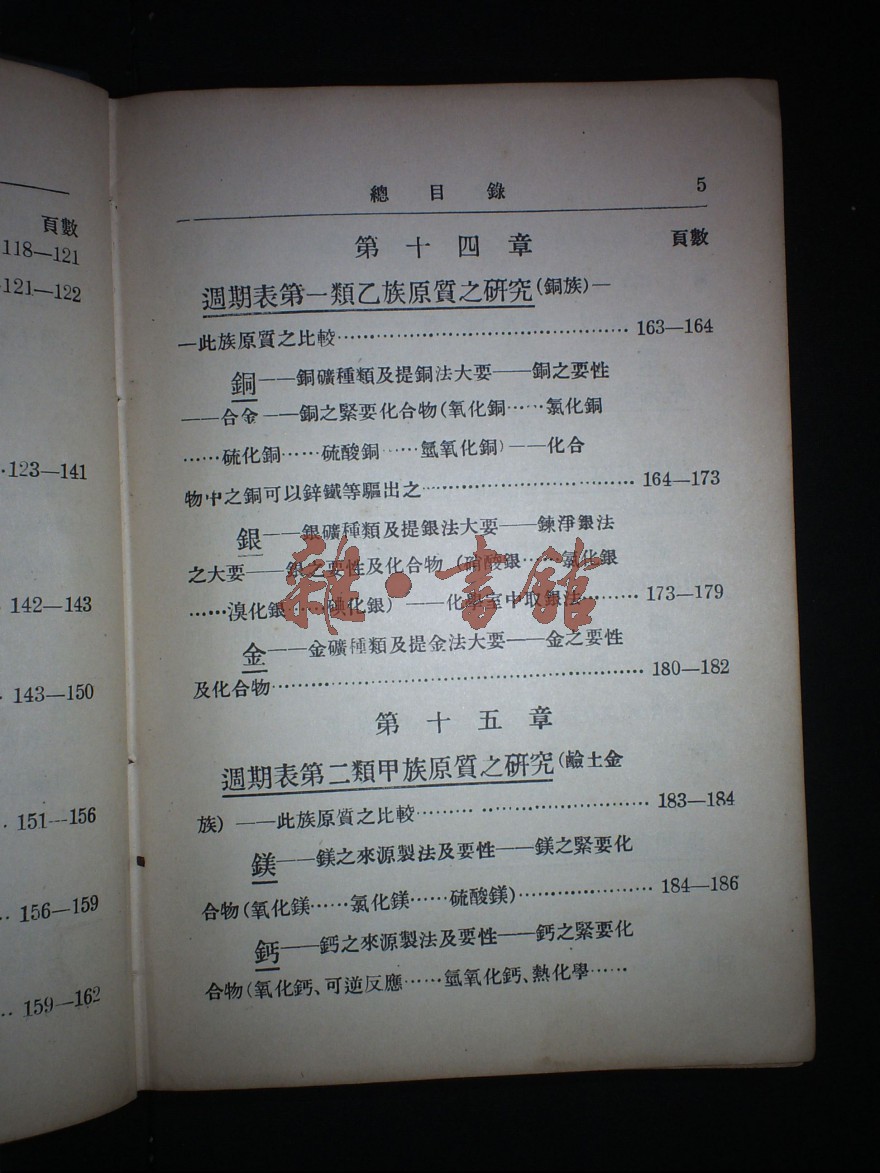 頁數
118—121
121—122
123—141
142—143
143—150
151—156
156—159
159—162
總目錄 5
第十四章 頁數
週期表第一類乙族原質之研究(銅族)—
—此族原質之比較…………………………………… 163—164
銅——銅礦種類及提銅法大要——銅之要性
——合金——銅之緊要化合物(氧化銅……氯化銅
……硫化銅……硫酸銅……氫氧化銅)——化合
物中之銅可以鋅鐵等驅出之………………………… 164—173
銀——銀礦種類及提銀法大要——鍊淨銀法
之大要——銀之要性及化合物(硝酸銀……氯化銀
……溴化銀……碘化銀)——化學室中取銀法……… 173—179
金——金礦種類及提金法大要——金之要性
及化合物……………………………………………… 180—182
第十五章
週期表第二類甲族原質之研究(鹼土金
族)——此族原質之比較……… …………………… 183—184
鎂——鎂之來源製法及要性——鎂之緊要化
合物(氧化鎂……氯化鎂……硫酸鎂)……………… 184—186
鈣——鈣之來源製法及要性——鈣之緊要化
合物(氧化鈣、可逆反應……氫氧化鈣、熱化學……
雜·書館